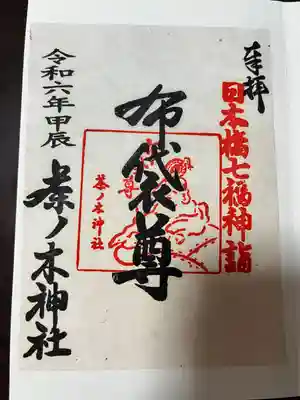 奉拝
日本橋七福神詣
布代衣尊
茶ノ木神社
令和六年甲辰
茶ノ木神社